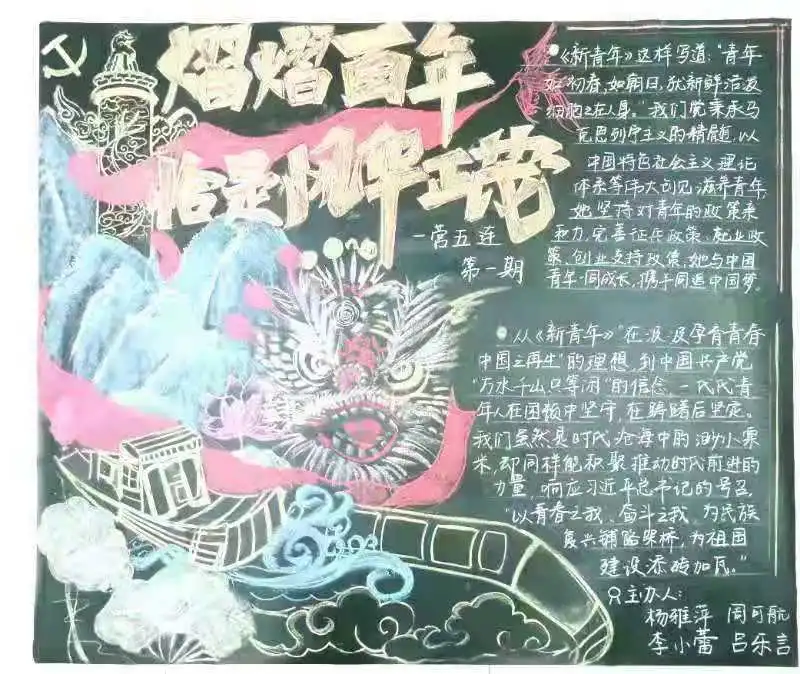 熠熠百年
恰是风华正茂
一营五连
第一期
《新青年》这样写道:“青年
如初春,如朝日,犹新鲜活泼
细胞之在人身。”我们党秉承马
克思列宁主义的精髓,以
中国特色社会主义理论
体系等伟大创见滋养青年,
她坚持对青年的政策亲
和力,完善征兵政策、就业政
策、创业支持政策,她与中国
青年一同成长,携手同逐中国梦。
从《新青年》“在汲汲孕育青春
中国之再生”的理想,到中国共产党
“万水千山只等闲”的信念,一代代青
年人在困顿中坚守,在踌躇后坚定。
我们虽然是时代沧海中的渺小粟
米,却同样能积聚推动时代前进的
力量,响应习近平总书记的号召,
“以青春之我、奋斗之我,为民族
复兴铺路架桥,为祖国
建设添砖加瓦。”
主办人:
杨雅萍 周可航
李小蕾 吕乐言